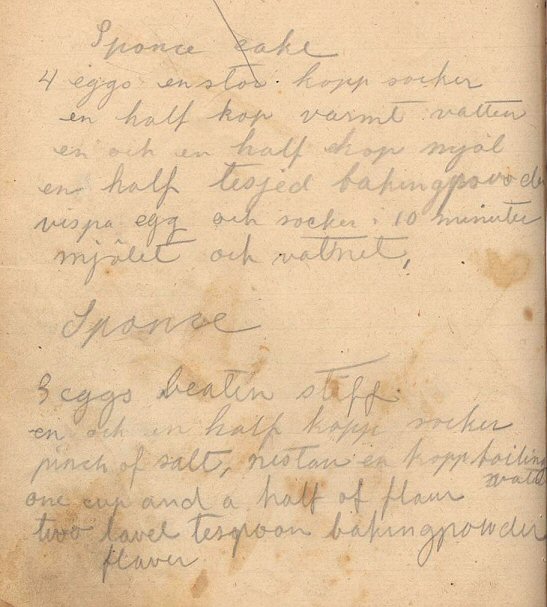 Sponce cake
4 eggs en stor kopp socker
en half kop varmt vatten
en och en half kop mjöl
en half tesjed bakingpovoder
vispa egg och socker 10 minuter
mjölet och vattnet,
Sponce
3 eggs beaten stiff
en och en half kopp socker
pinch of salt, nestan en kopp boiling
watter
one cup and a half of flaur
two lavel tespoon bakingpowder
flaver